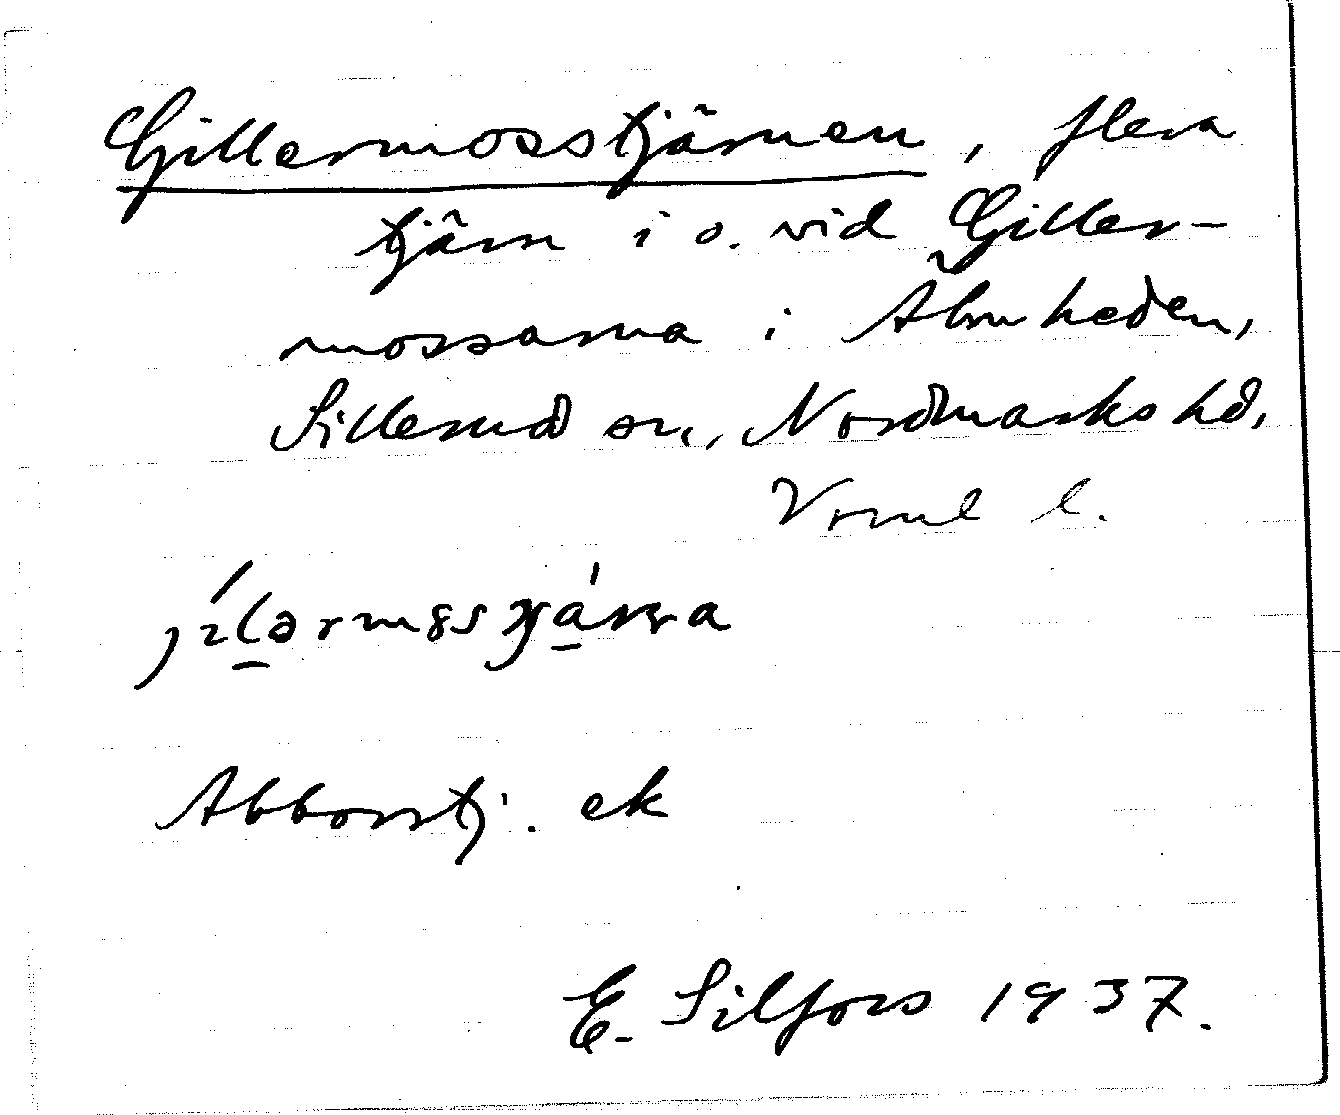 Gillermosstjärnen, flera
tjärn i o. vid Giller-
mossarna i Älvuheden,
Sillerud sn., Nordmarks hd,
Vrml l.
Abborrtj. ek
E. Silfors 1937.